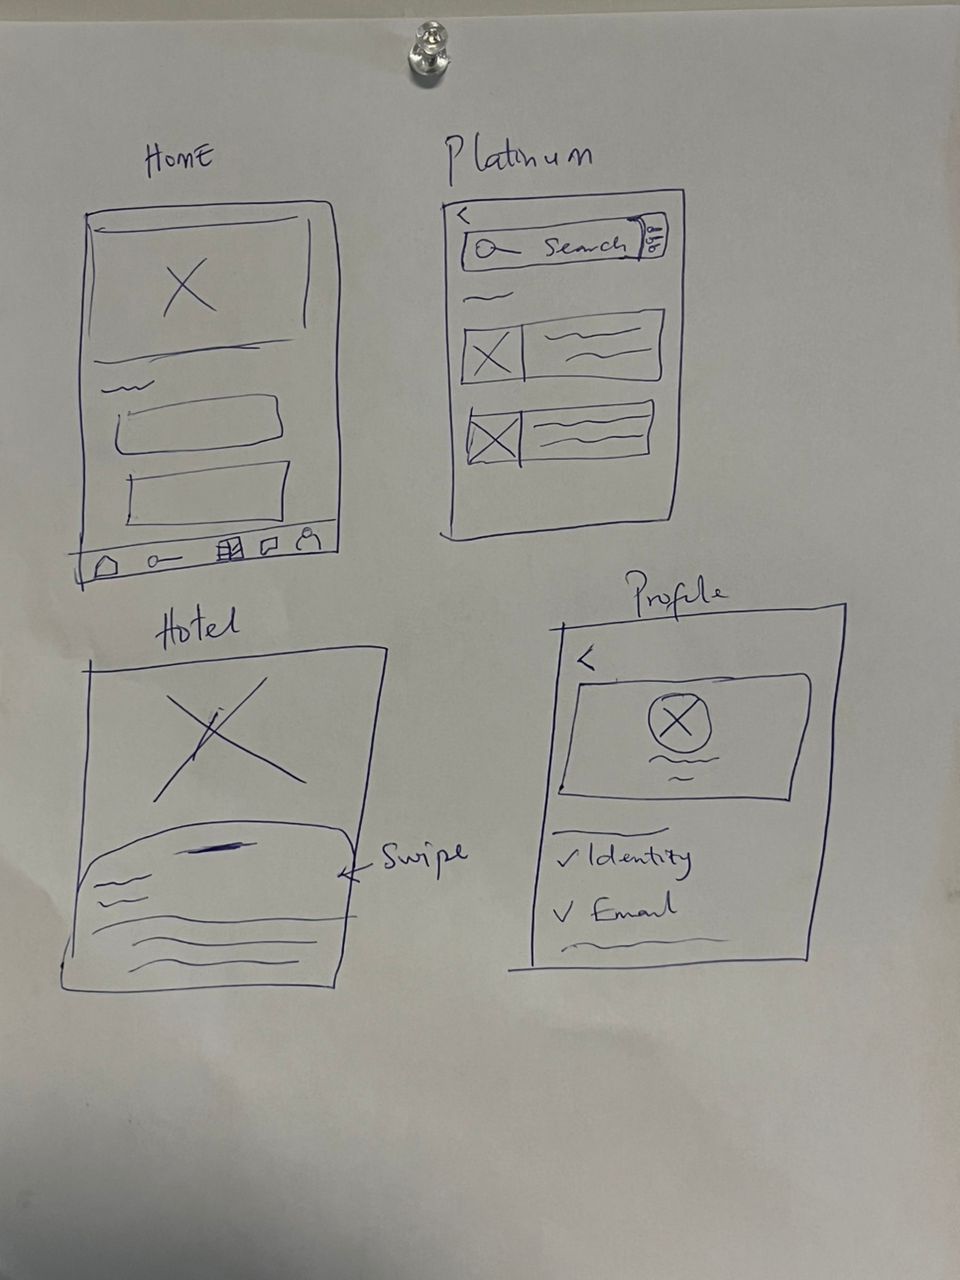 HOME
Platinum
Search
Hotel
Swipe
Profile
Identity
Email